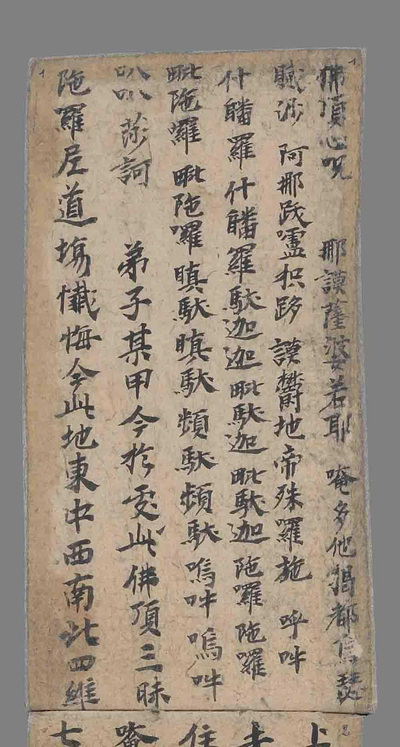 佛頂心呪 那謨薩婆若耶 唵多他揭都烏瑟
膩沙 阿那民嚧枳路 謨欝地帝殊羅施 呼吽
什皤羅什皤羅馱迦毗馱迦毗馱迦陁羅陁羅
毗陁囉毗陁囉瞋馱瞋馱頻馱頻馱嗚吽嗚吽
莎訶 弟子某甲今於受此佛頂三昧
陁羅尼道塲懺悔今此地東中西南北四維
上
住
唵
七